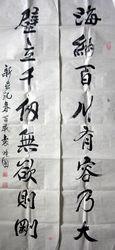 海納百川有容乃大
壁立千仞無欲則剛